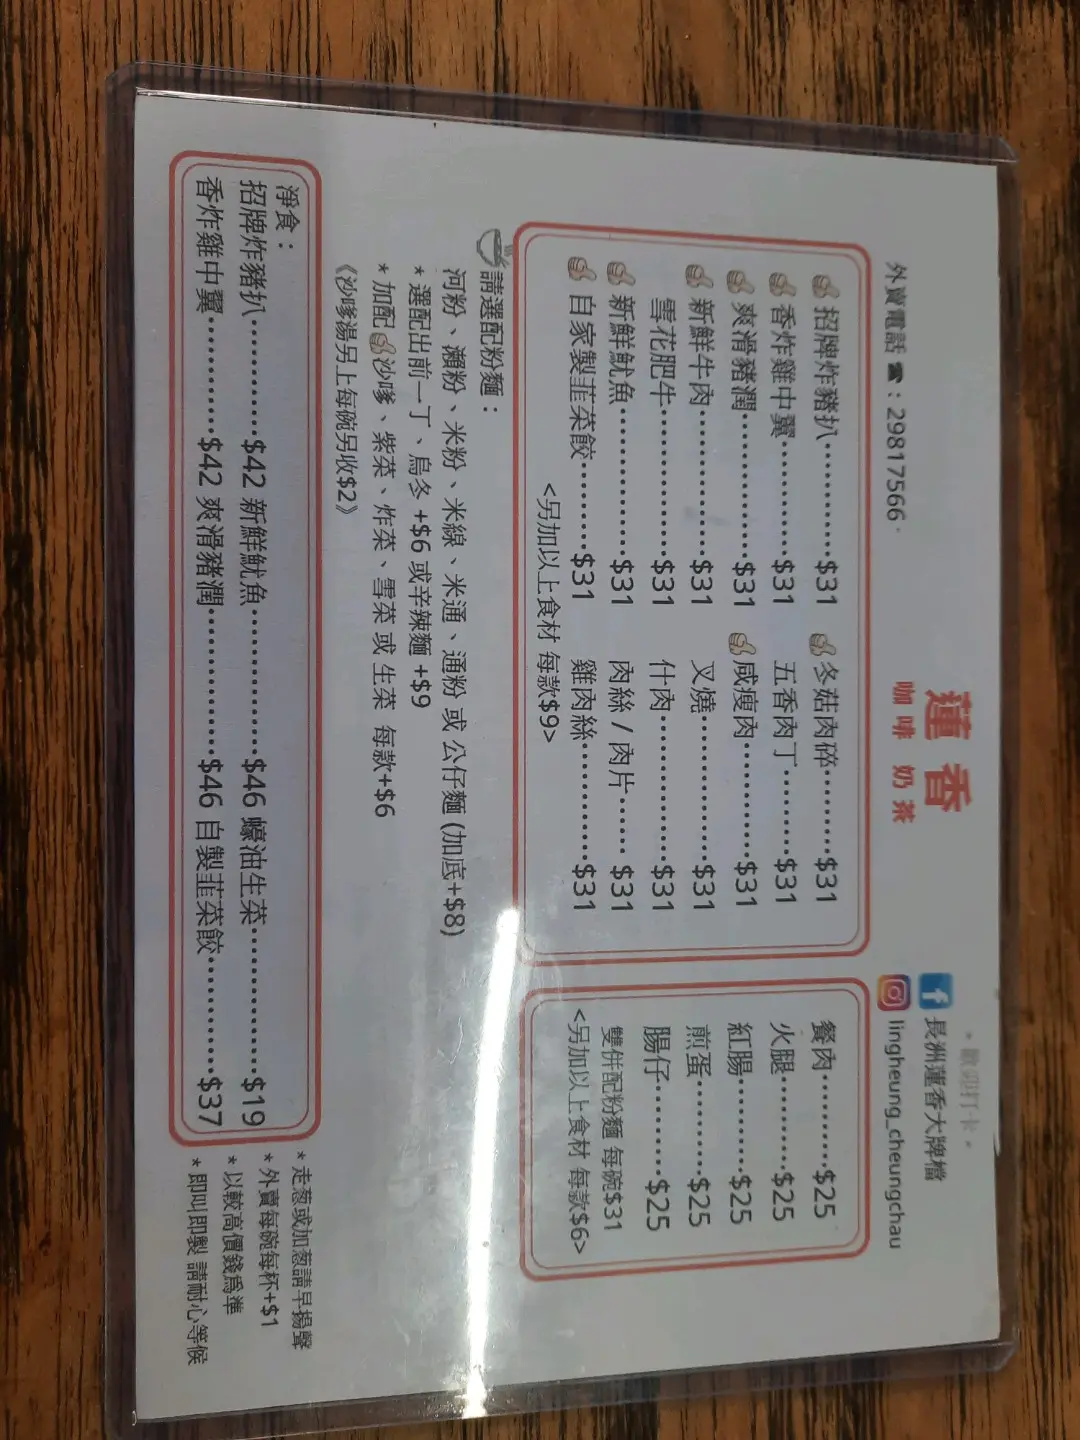 蓮香
咖啡 奶茶
外賣電話 ☎：29817566
*歡迎打卡*
長洲蓮香大牌檔
lingheung_cheungchau
招牌炸豬扒………$31 冬菇肉碎………$31
香炸雞中翼………$31 五香肉丁………$31
爽滑豬潤………$31 咸瘦肉………$31
新鮮牛肉………$31 叉燒………$31
雪花肥牛………$31 什肉………$31
新鮮魷魚………$31 肉絲 / 肉片…… $31
自家製韮菜餃……$31 雞肉絲………$31
<另加以上食材 每款$9>
餐肉………$25
火腿………$25
紅腸………$25
煎蛋………$25
腸仔………$25
雙併配粉麵 每碗$31
<另加以上食材 每款$6>
請選配粉麵：
河粉、瀨粉、米粉、米線、米通、通粉 或 公仔麵 (加底+$8)
* 選配出前一丁、烏冬 +$6 或辛辣麵 +$9
* 加配 沙嗲、紫菜、炸菜、雪菜 或 生菜 每款+$6
《沙嗲湯另上每碗另收$2》
淨食：
招牌炸豬扒………$42 新鮮魷魚………$46 蠔油生菜………$19
香炸雞中翼………$42 爽滑豬潤………$46 自製韮菜餃………$37
* 走葱或加葱請早揚聲
* 外賣每碗每杯+$1
* 以較高價錢爲準
* 即叫即製 請耐心等候